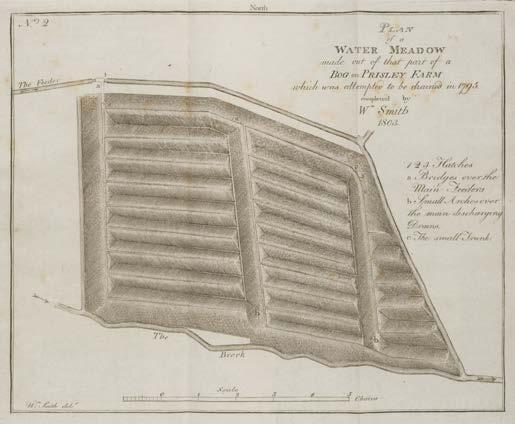 North
No. 2
PLAN
of a
WATER MEADOW
made out of that part of a
BOG on PRISLEY FARM
which was attempted to be drained in 1795
completed by
Wm. Smith
1803.
The Feeder
1 2 3 Hatches
a Bridges over the
Main Feeders
b Small Arches over
the main discharging
Drains
c The small Trunk
The
Brook
Scale
Chains
Wm. Smith delt.